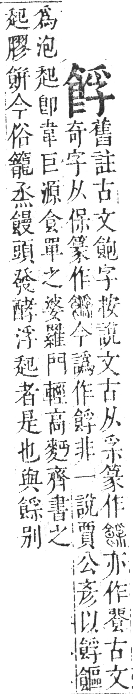 䬦舊註古文飽字按說文古从𤓽篆作𩜿亦作𩛙古文
奇字从保篆作䭋今譌作䬦非一說賈公彥以䬦䭔
為泡起卽韋巨源食單之婆羅門輕高麪齊書之
起膠餅今俗籠烝饅頭發酵浮起者是也與餜別